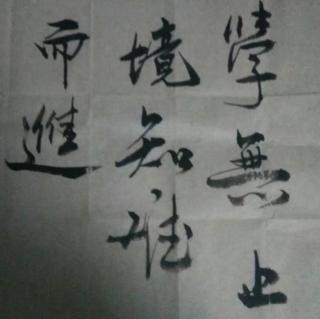 學無止
境知難
而進